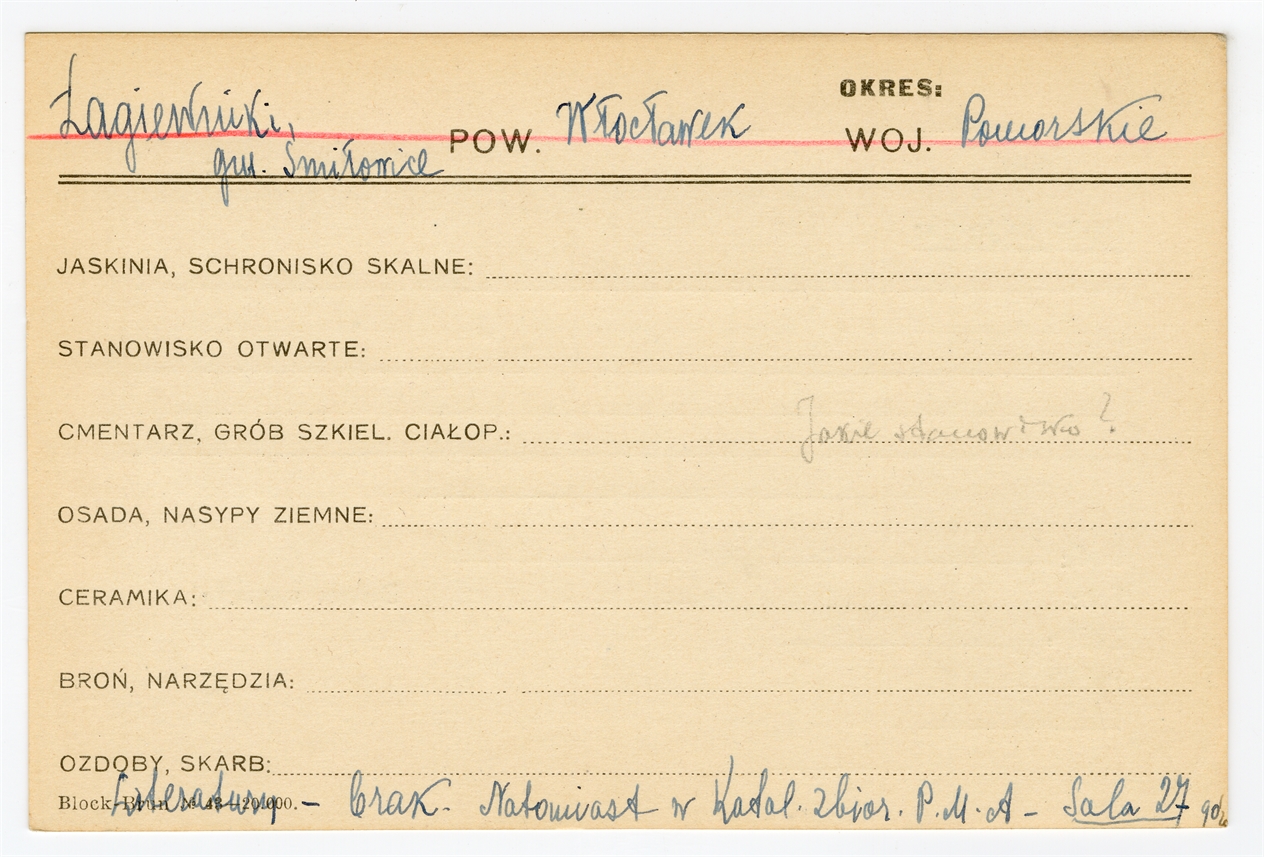 OKRES:
Łagiewniki, POW. Włocławek WOJ. Pomorskie
gm. Śmiłowice
JASKINIA, SCHRONISKO SKALNE:
STANOWISKO OTWARTE:
CMENTARZ, GRÓB SZKIEL. CIAŁOP.: Jakie stanowisko?
OSADA, NASYPY ZIEMNE:
CERAMIKA:
BROŃ, NARZĘDZIA:
OZDOBY, SKARB:
Literatury - brak. Natomiast w Katal. zbior. P.M.A - Sala 27
Block-Brun № 43—20.000.